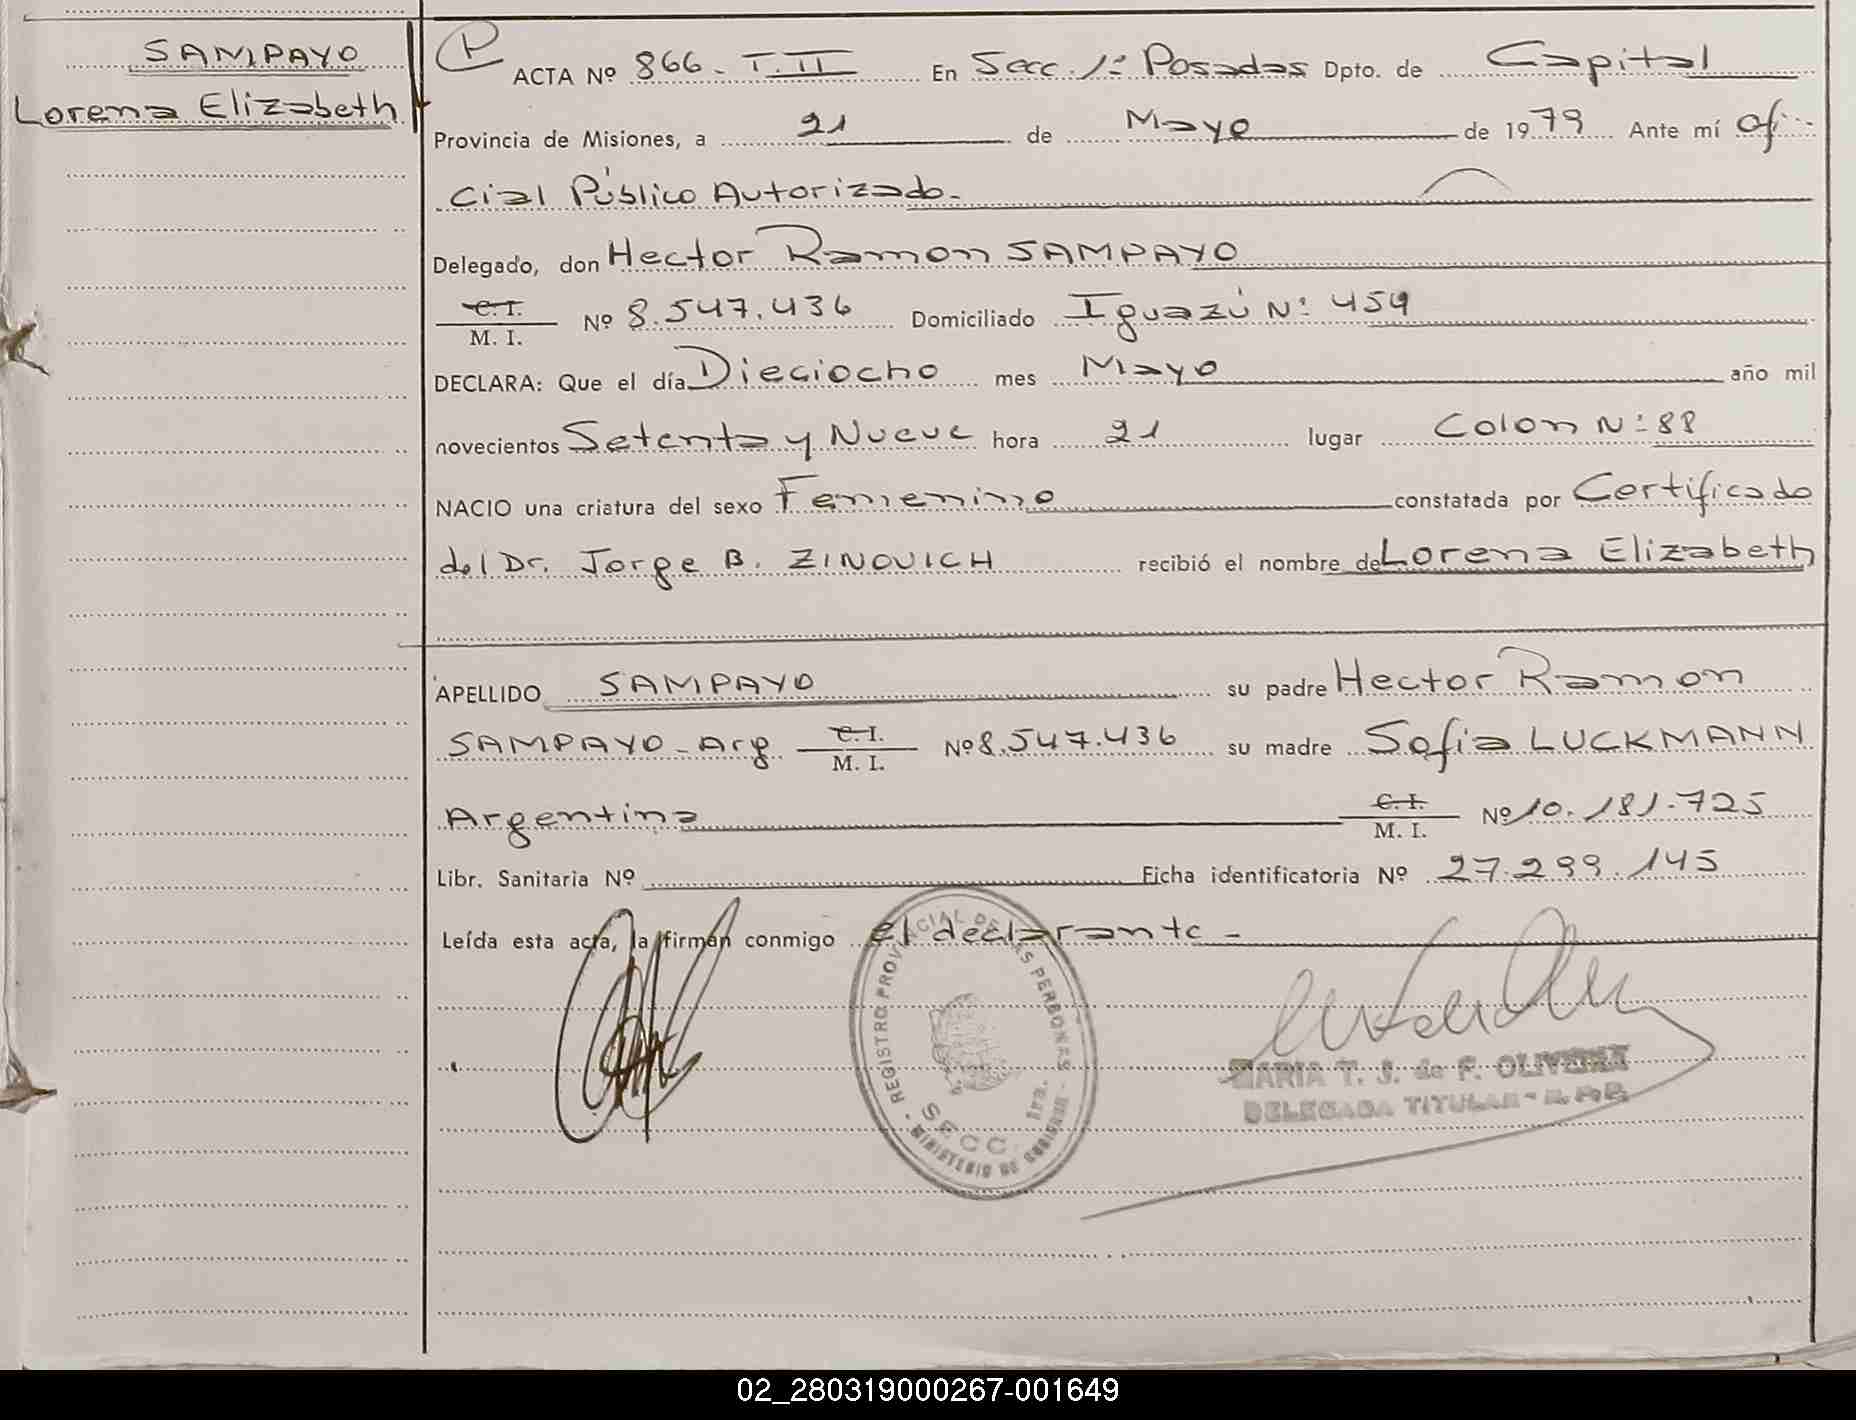 SAMPAYO
Lorena Elizabeth
ACTA Nº 866 - T. II En Secc. 1ª Posadas Dpto. de Capital
Provincia de Misiones, a 21 de Mayo de 1979 Ante mí ofi-
cial Público Autorizado.-
Delegado, don Hector Ramon SAMPAYO
C. I.
M. I. Nº 8.547.436 Domiciliado Iguazú Nº 454
DECLARA: Que el día Dieciocho mes Mayo año mil
novecientos Setenta y Nueve hora 21 lugar Colon Nº 88
NACIO una criatura del sexo Femenino constatada por Certificado
del Dr. Jorge B. ZINOVICH recibió el nombre de Lorena Elizabeth
APELLIDO SAMPAYO su padre Hector Ramon
SAMPAYO - Arg. C. I. M. I. Nº 8.547.436 su madre Sofia LUCKMANN
Argentina C. I. M. I. Nº 10.181.725
Libr. Sanitaria Nº Ficha identificatoria Nº 27.299.145
Leída esta acta, la firman conmigo el declarante -
REGISTRO PROVINCIAL DE LAS PERSONAS
SECC. 1ra.
MINISTERIO DE GOBIERNO
MARIA T. S. de F. OLIVEIRA
DELEGADA TITULAR - R. P. P.
02_280319000267-001649